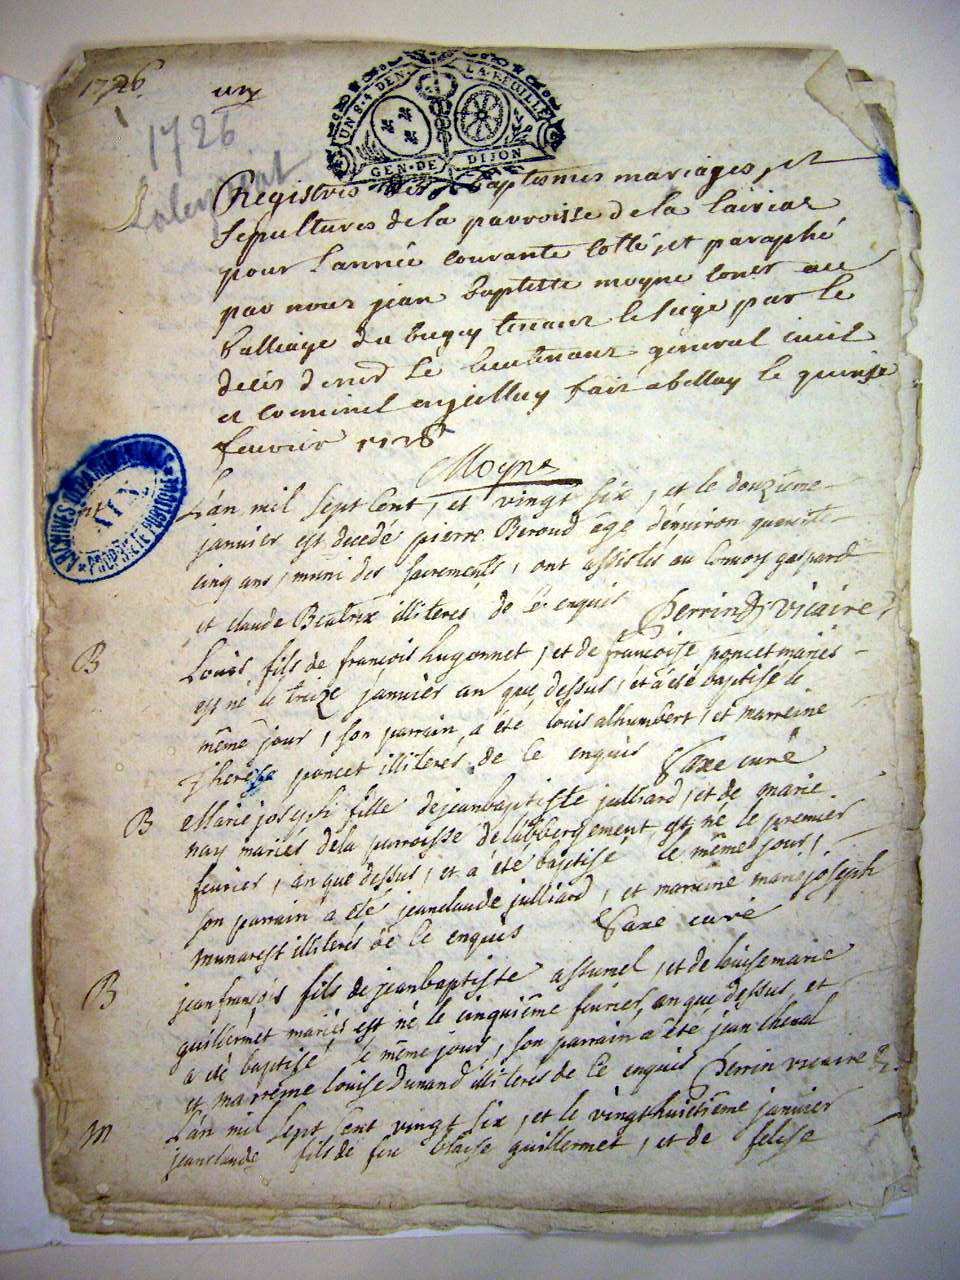 1726
un
UN S. 4 DEN. LA FEUILLE
GEN. DE DIJON
1726
Registres des baptesmes mariages, et
sepultures de la parroisse de la
pour l'année courante cotté, et paraphé
par nous jean baptiste moyne coner au
balliage du bugey tenant le siege par le
deces de mr le lieutenant general civil
et criminel fait a belley le quinze
feuvrier 1726
Moyne
ARCHIVES DÉPARTEMENTALES
AIN
PROPRIÉTÉ PUBLIQUE
L'an mil sept cent, et vingt six, et le douzième
janvier est decedé pierre Beroud âgé d'environ quarante
cinq ans, muni des sacrements, ont assistes au convoy gaspard
et claude Beatrix illiteres de ce enquis Perrin vicaire
B
Louis fils de françois hugonnet, et de françoise poncet mariés
est né le treize janvier an que dessus, et a été baptisé le
même jour, son parrain a été louis alhumbert, et marreine
Therese poncet illiteres de ce enquis Saxe curé
B
Marie joseph fille de jeanbaptiste julliard, et de marie
nay mariés de la parroisse de labbergement est né le premier
fevrier, an que dessus, et a été baptisé le même jour,
son parrain a été jeanclaude julliard, et marreine marie joseph
munarest illiterés de ce enquis Saxe curé
B
jeanfrançois fils de jeanbaptiste assuriel, et de louise marie
guillermet mariés est né le cinquième fevrier, an que dessus et
a été baptisé le même jour, son parrain a été jean cheval
et marreine louise Dunand illiterés de ce enquis Perrin vicaire
m
L'an mil sept cent vingt six, et le vingthuictième janvier
jeanclaude fils de feu blaise guillermet, et de felise